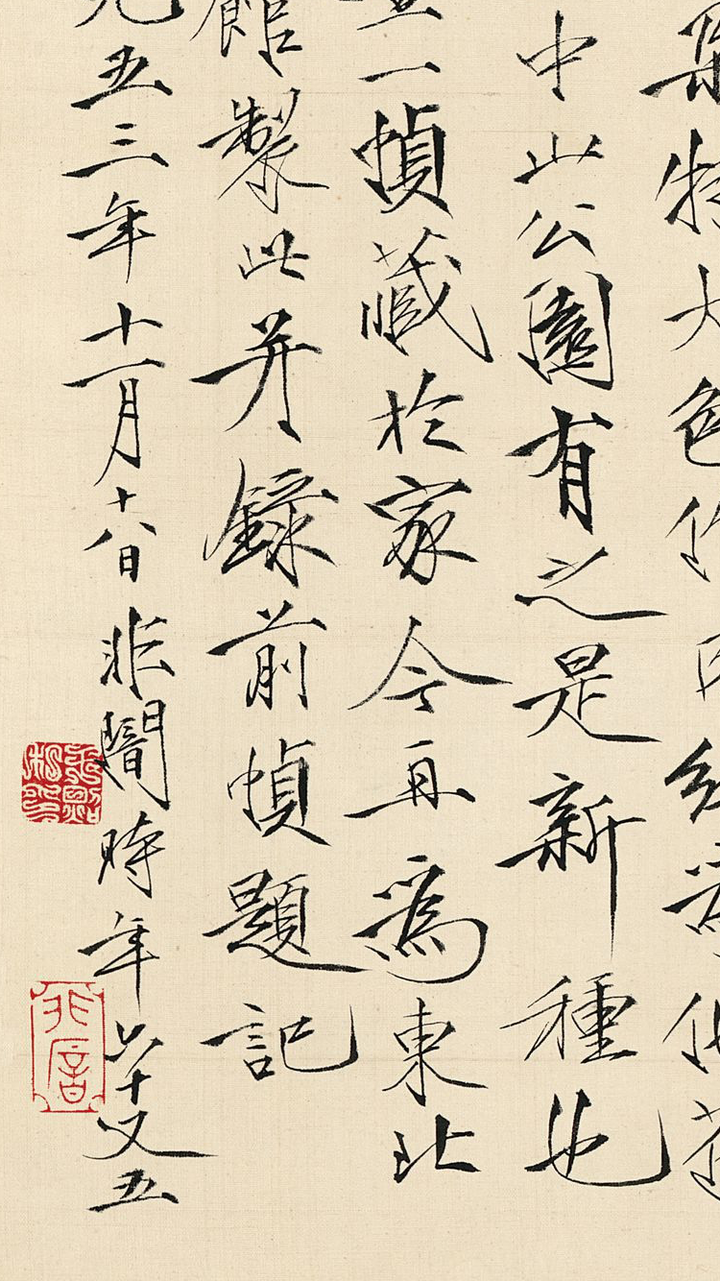 朵特大色作紅為他花
中山公園有之是新種也
一幀藏於家今再為東北
館製此并錄前幀題記
九五三年十一月十八日非闇時年六十又五